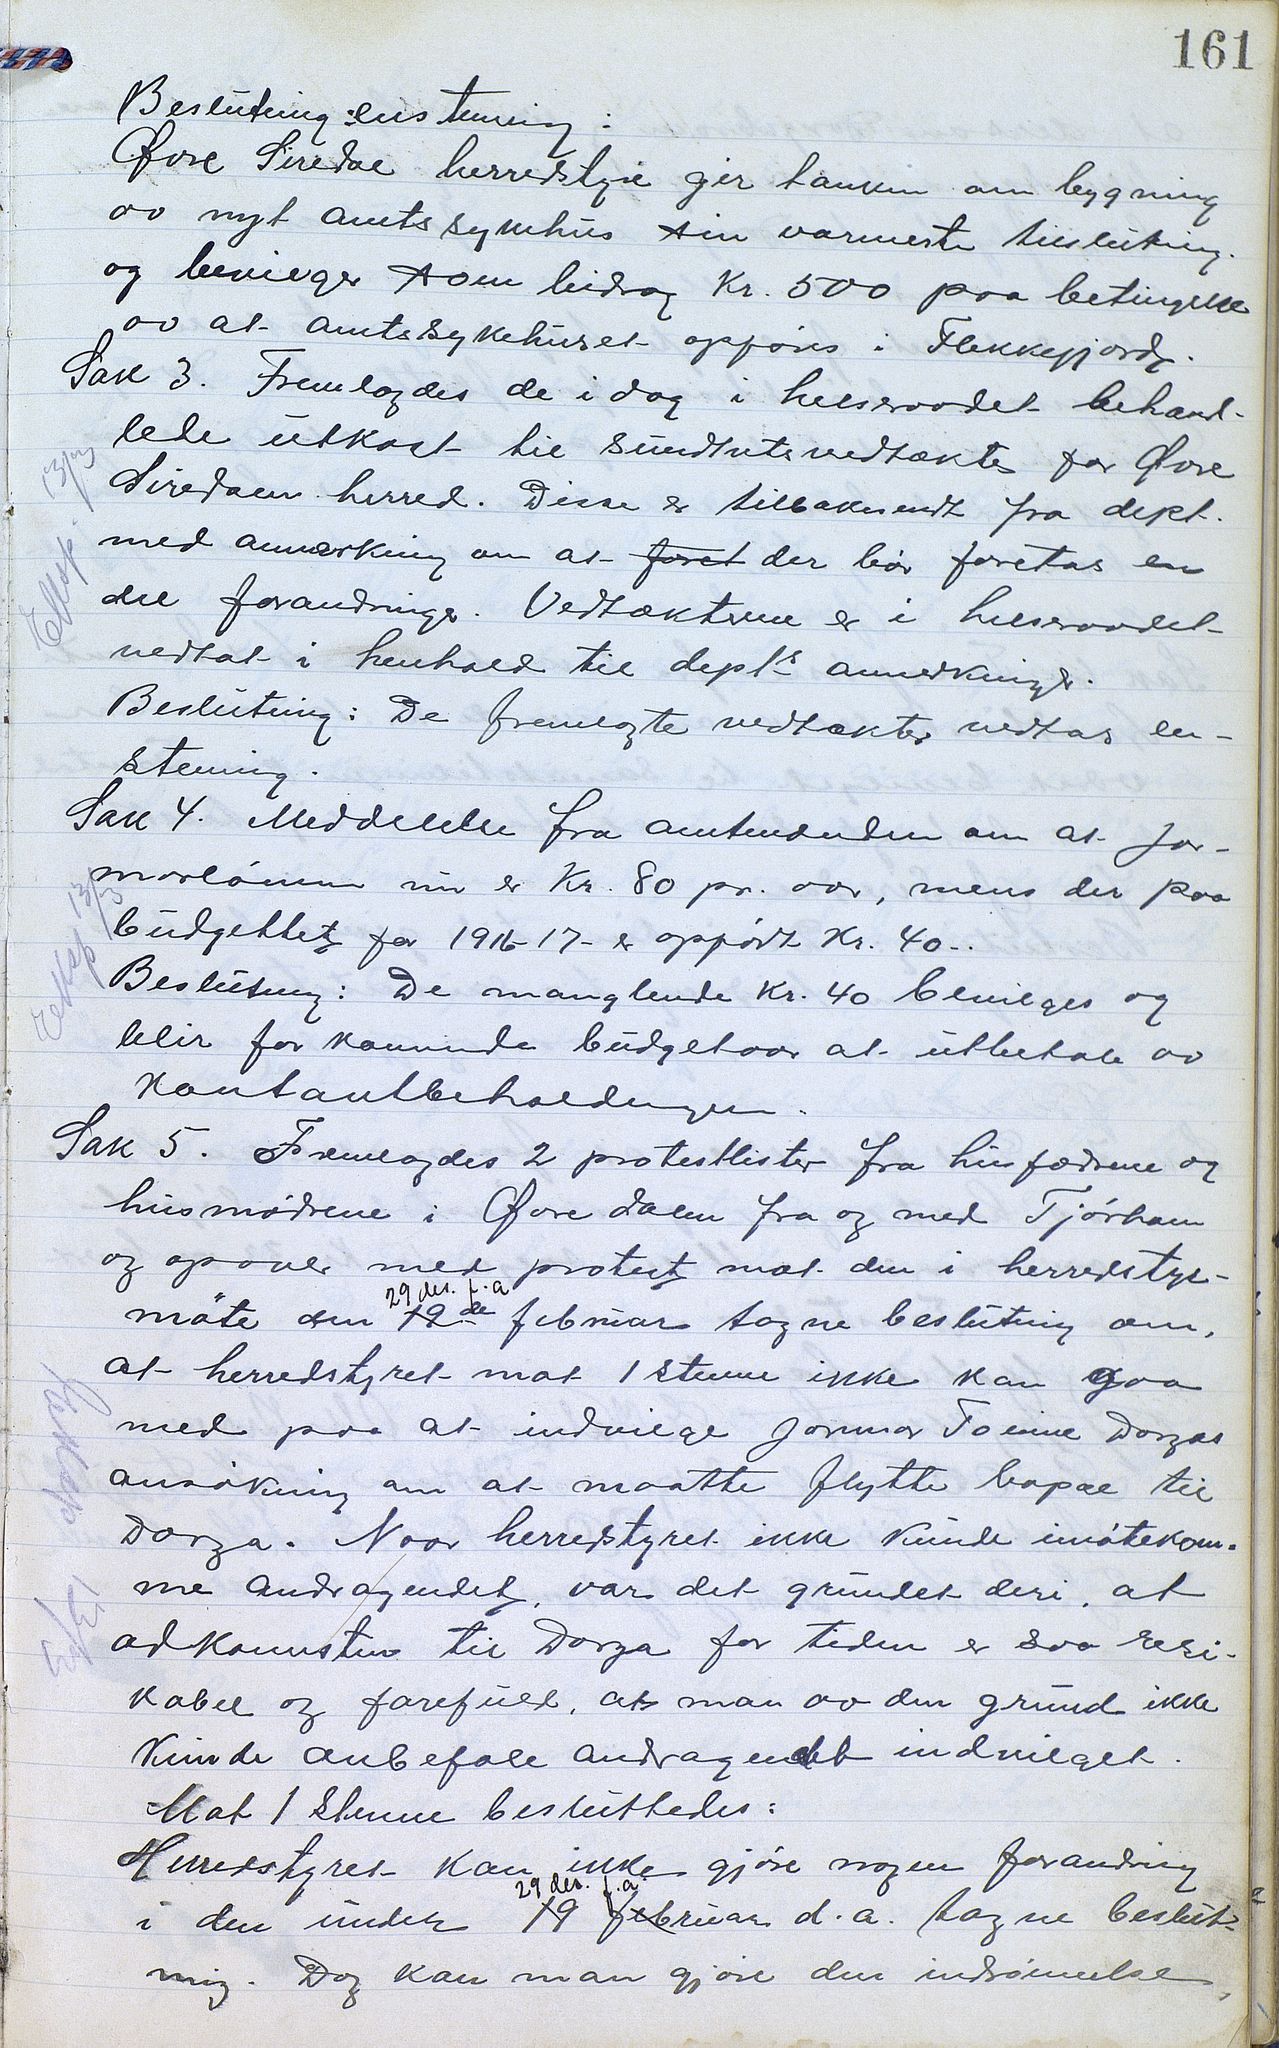 161
Beslutning: enstemmig:
Øvre Siredal herredstyre gir tanken om bygning
av nyt amtssykehus sin varmeste tilslutning
og bevilger som bidrag Kr. 500 paa betingelse
av at amtssykehuset opføres i Flekkefjord.
Sak 3. Fremlagdes de idag i helseraadet behand-
lede utkast til sundhetsvedtækter for Øvre
Siredalen herred. Disse er tilbakesendt fra dept.
med anmerkning om at foret der bør foretas en
del forandringer. Vedtækterne er i helseraadet
vedtat i henhold til depts anmerkninger.
Beslutning: De fremlagte vedtækter vedtas en-
stemmig.
Sak 4. Meddelelse fra amtmanden om at jor-
morlønnen nu er Kr. 80 pr. aar, mens der paa
budgettet for 1916-17 er opført Kr. 40-.
Beslutning: De manglende Kr. 40 bevilges og
blir for kommende budgetaar at utbetale av
Kontantbeholdningen.
Sak 5. Fremlagdes 2 protestlister fra husfædrene og
husmødrene i Øvre dalen fra og med Tjørham
og opover med protest mot den i herredstyre-
29 des. f.a
møte den 19de februar tagne beslutning om,
at herredstyret mot 1 stemme ikke kan gaa
med paa at indvilge jormor Toline Dorgas
ansøkning om at maatte flytte bopæl til
Dorga. Naar herredstyret ikke kunde imøtekom-
me andragendet, var det grundet deri, at
adkomsten til Dorga for tiden er saa resi-
kabel og farefuld, at man av den grund ikke
kunde anbefale andragendet indvilget.
Mot 1 stemme besluttedes:
Herredstyret kan ikke gjøre nogen forandring
29 des. f.a.
i den under 19 februar d.a. tagne beslut-
ning. Dog kan man gjøre den indrømmelse,
Ekksp. 13/3
Ekksp 13/3
Eekksp
13/3